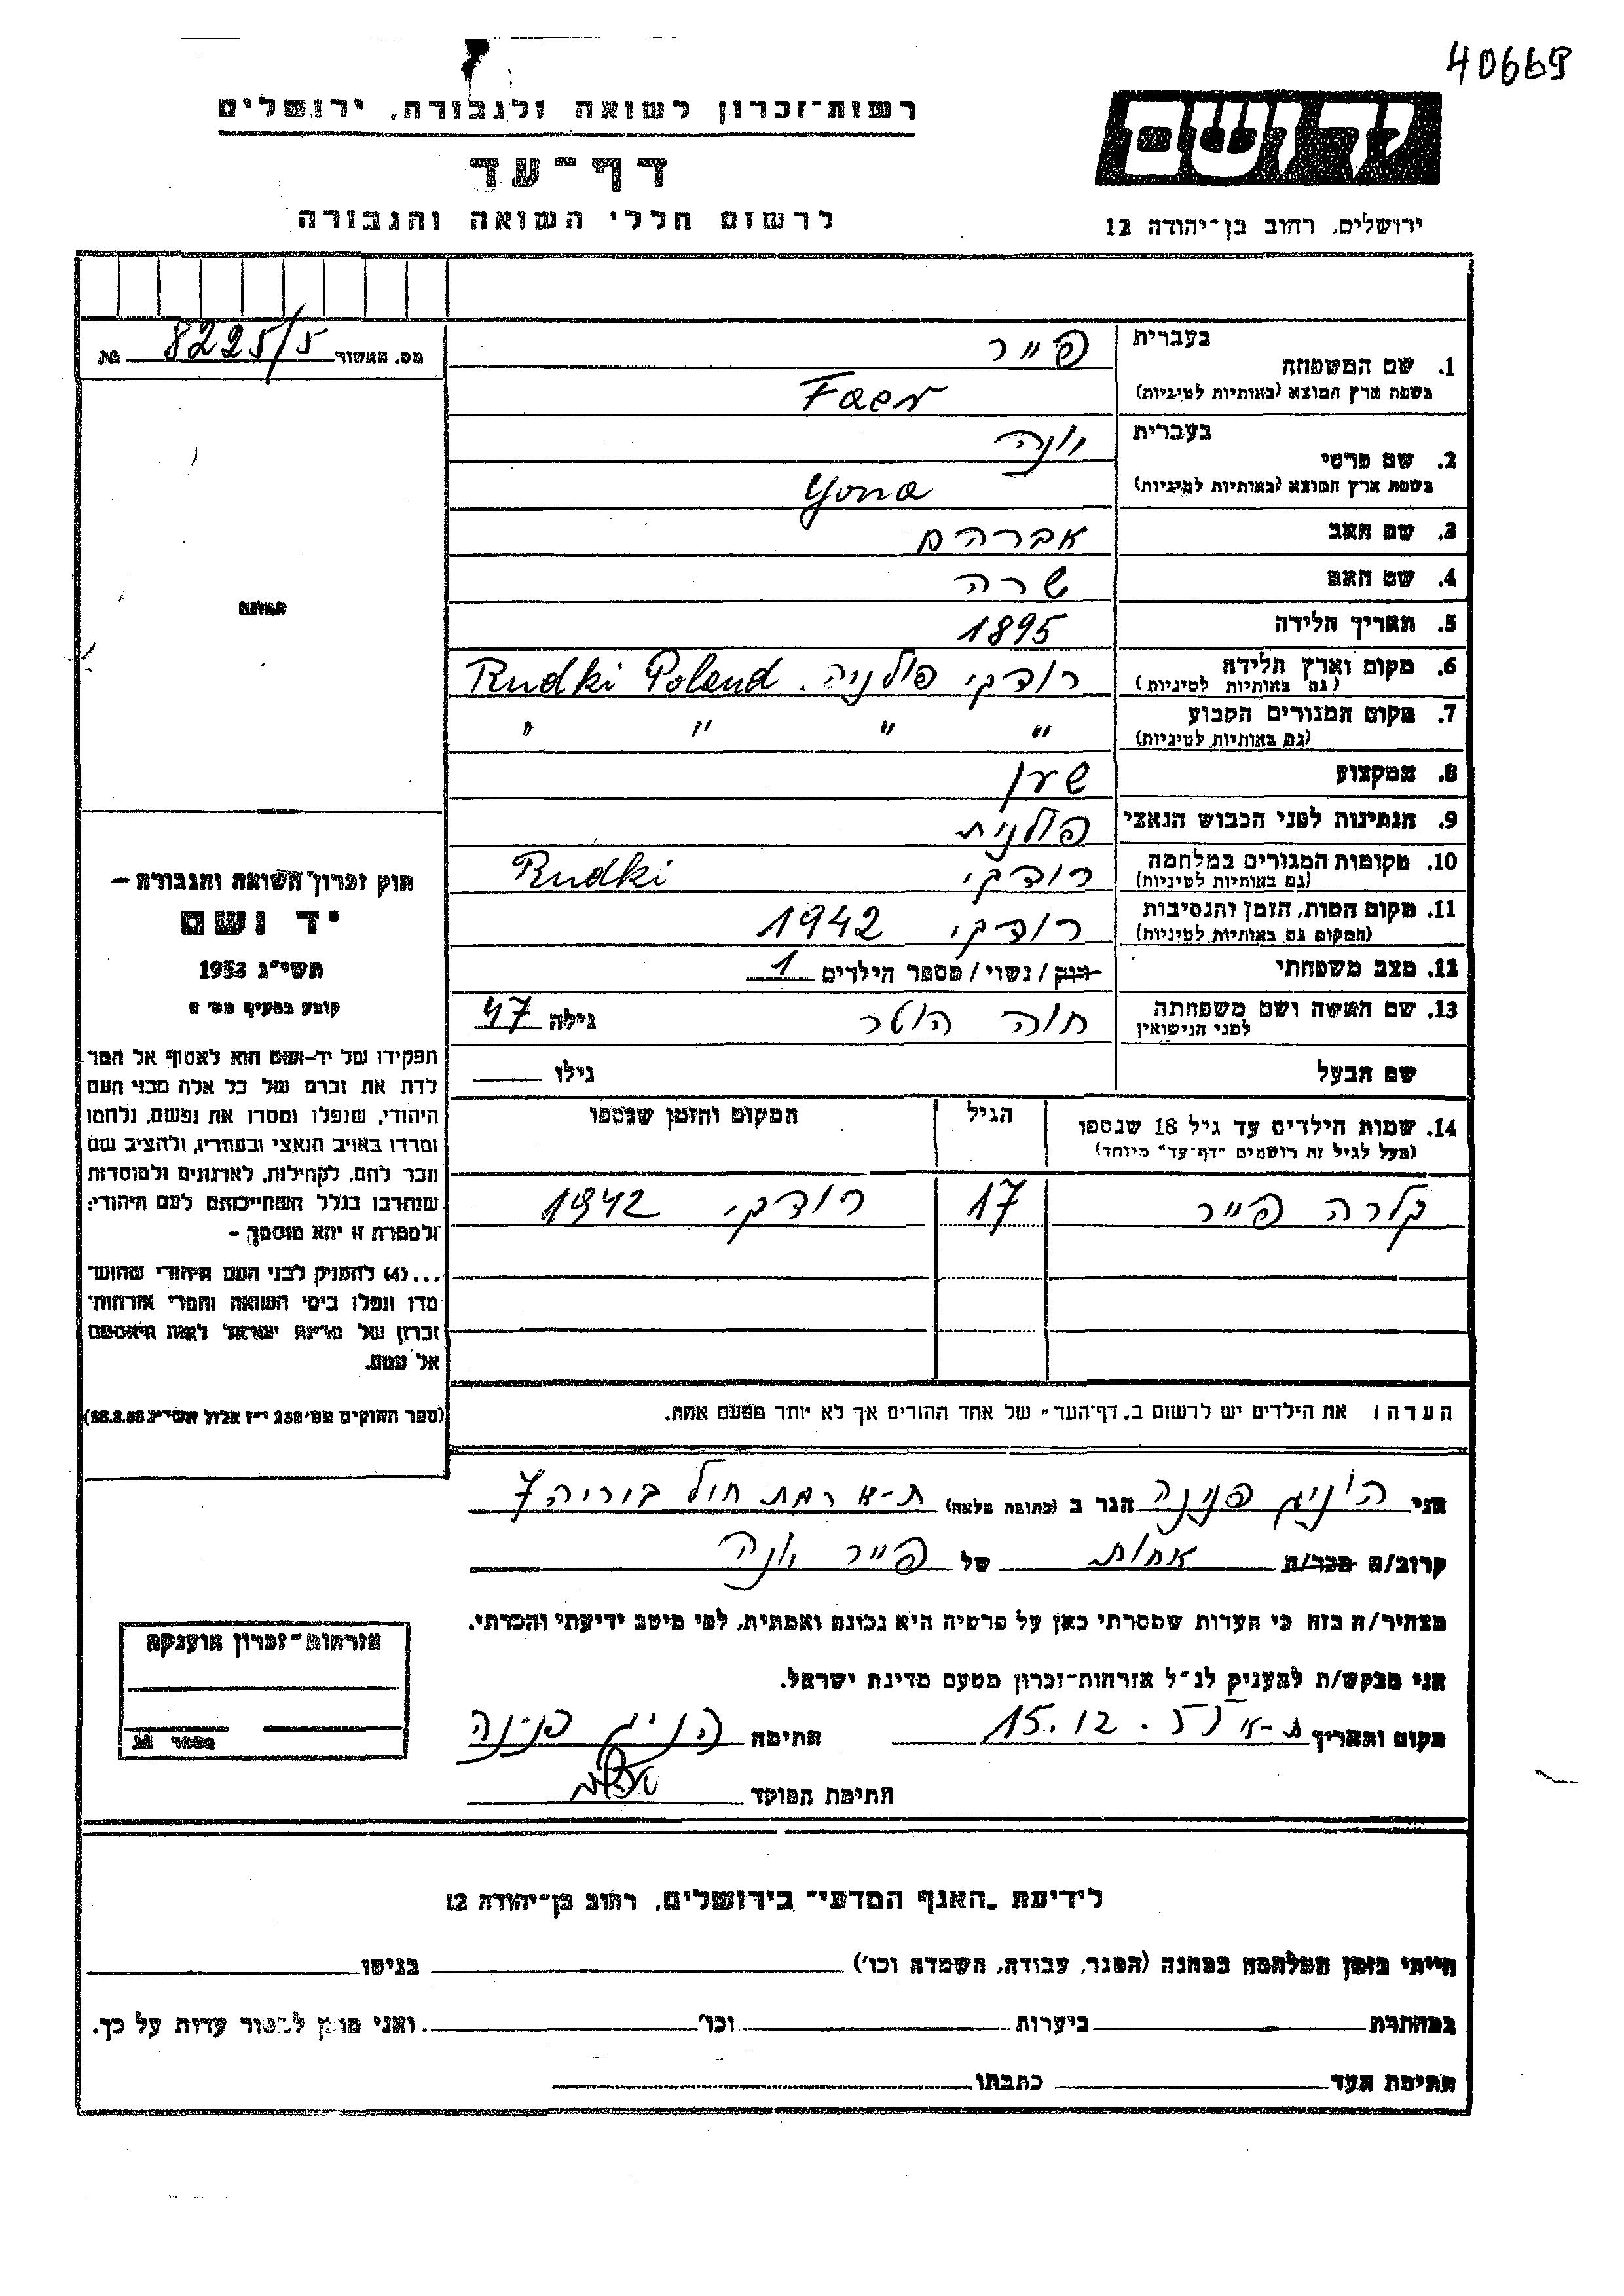 40669
יד ושם
רשות־זכרון לשואה ולגבורה, ירושלים
דף־עד
לרשום חללי השואה והגבורה
ירושלים, רחוב בן־יהודה 12
מס. האשור 8225/5 №
1. שם המשפחה בעברית פייר
בשפת ארץ המוצא (באותיות לטיניות) Faer
2. שם פרטי בעברית יונה
בשפת ארץ המוצא (באותיות לטיניות) Yona
3. שם האב אברהם
4. שם האם שרה
5. תאריך הלידה 1895
6. מקום וארץ הלידה (גם באותיות לטיניות) רודקי פולניה. Rudki Poland
7. מקום המגורים הקבוע (גם באותיות לטיניות) " " " "
8. המקצוע שען
9. הנתינות לפני הכבוש הנאצי פולנית
10. מקומות המגורים במלחמה (גם באותיות לטיניות) רודקי Rudki
11. מקום המות, הזמן והנסיבות (המקום גם באותיות לטיניות) רודקי 1942
12. מצב משפחתי רווק / נשוי / מספר הילדים 1
13. שם האשה ושם משפחתה לפני הנישואין חוה הוטר גילה 47
שם הבעל גילו
14. שמות הילדים עד גיל 18 שנספו הגיל המקום והזמן שנספו
(מעל לגיל זה רושמים "דף־עד" מיוחד)
קלרה פייר 17 רודקי 1942
הערה: את הילדים יש לרשום ב"דף־העד" של אחד ההורים אך לא יותר מפעם אחת.
התמונה
חוק זכרון השואה והגבורה –
יד ושם
תשי"ג 1953
קובע בסעיף מס' 2
תפקידו של יד־ושם הוא לאסוף אל המו־
לדת את זכרם של כל אלה מבני העם
היהודי, שנפלו ומסרו את נפשם, נלחמו
ומרדו באויב הנאצי ובעוזריו, ולהציב שם
וזכר להם, לקהילות, לארגונים ולמוסדות
שנחרבו בגלל השתייכותם לעם היהודי;
ולמטרה זו יהא מוסמך –
...(4) להעניק לבני העם היהודי שהוש־
מדו ונפלו בימי השואה והמרי אזרחות־
זכרון של מדינת ישראל לאות היאספם
אל עמם.
(ספר החוקים מס' 132 י"ז אלול תשי"ג 28.8.53)
אני הוניג פנינה הגר ב (כתובת מלאה) ת-א רמת חול בוריה 7
קרוב/ה מכר/ת אחות של פייר יונה
מצהיר/ה בזה כי העדות שמסרתי כאן על פרטיה היא נכונה ואמתית, לפי מיטב ידיעתי והכרתי.
אני מבקש/ת להעניק לנ"ל אזרחות־זכרון מטעם מדינת ישראל.
מקום ותאריך ת-א 15.12.55 חתימה הניג פנינה
חתימת הפוקד
אזרחות־זכרון הוענקה
מספר №
לידיעת "האגף המדעי" בירושלים, רחוב בן־יהודה 12
הייתי בזמן המלחמה במחנה (הסגר, עבודה, השמדה וכו') בגיטו
במחתרת ביערות וכו' ואני מוכן למסור עדות על כך.
חתימת העד כתבתו